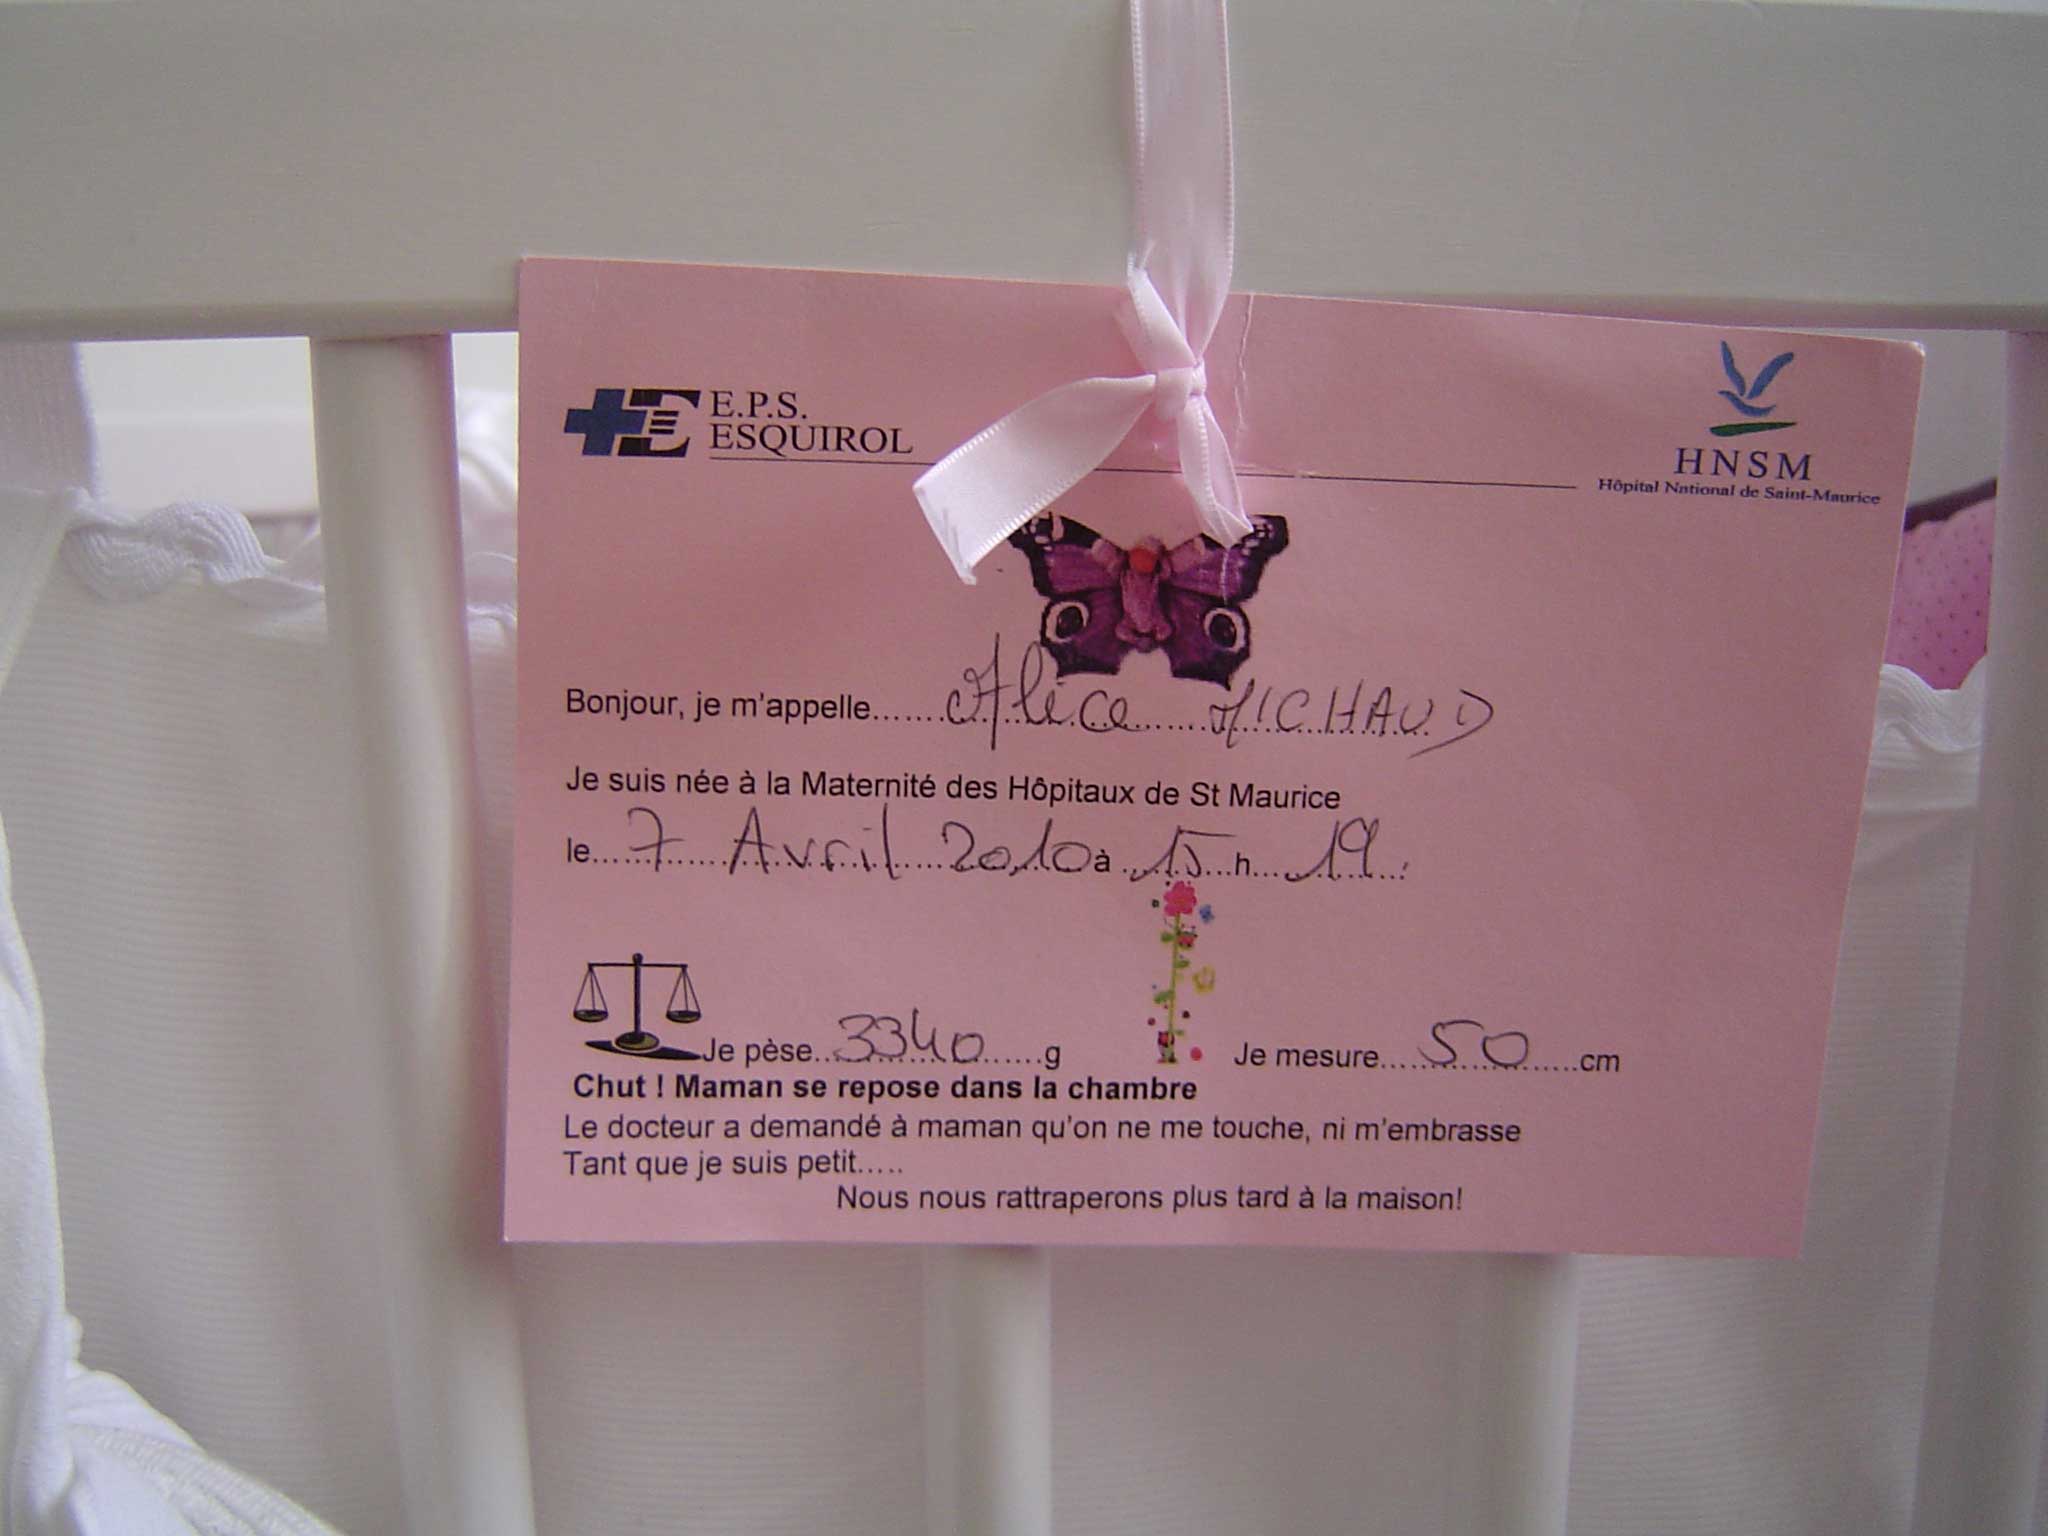 E.P.S.
ESQUIROL
HNSM
Hôpital National de Saint-Maurice
Bonjour, je m'appelle.......Alice MICHAUD
Je suis née à la Maternité des Hôpitaux de St Maurice
le......7 Avril 2010 à 15 h...19
Je pèse..3340......g
Je mesure....50.....cm
Chut ! Maman se repose dans la chambre
Le docteur a demandé à maman qu'on ne me touche, ni m'embrasse
Tant que je suis petit.....
Nous nous rattraperons plus tard à la maison!